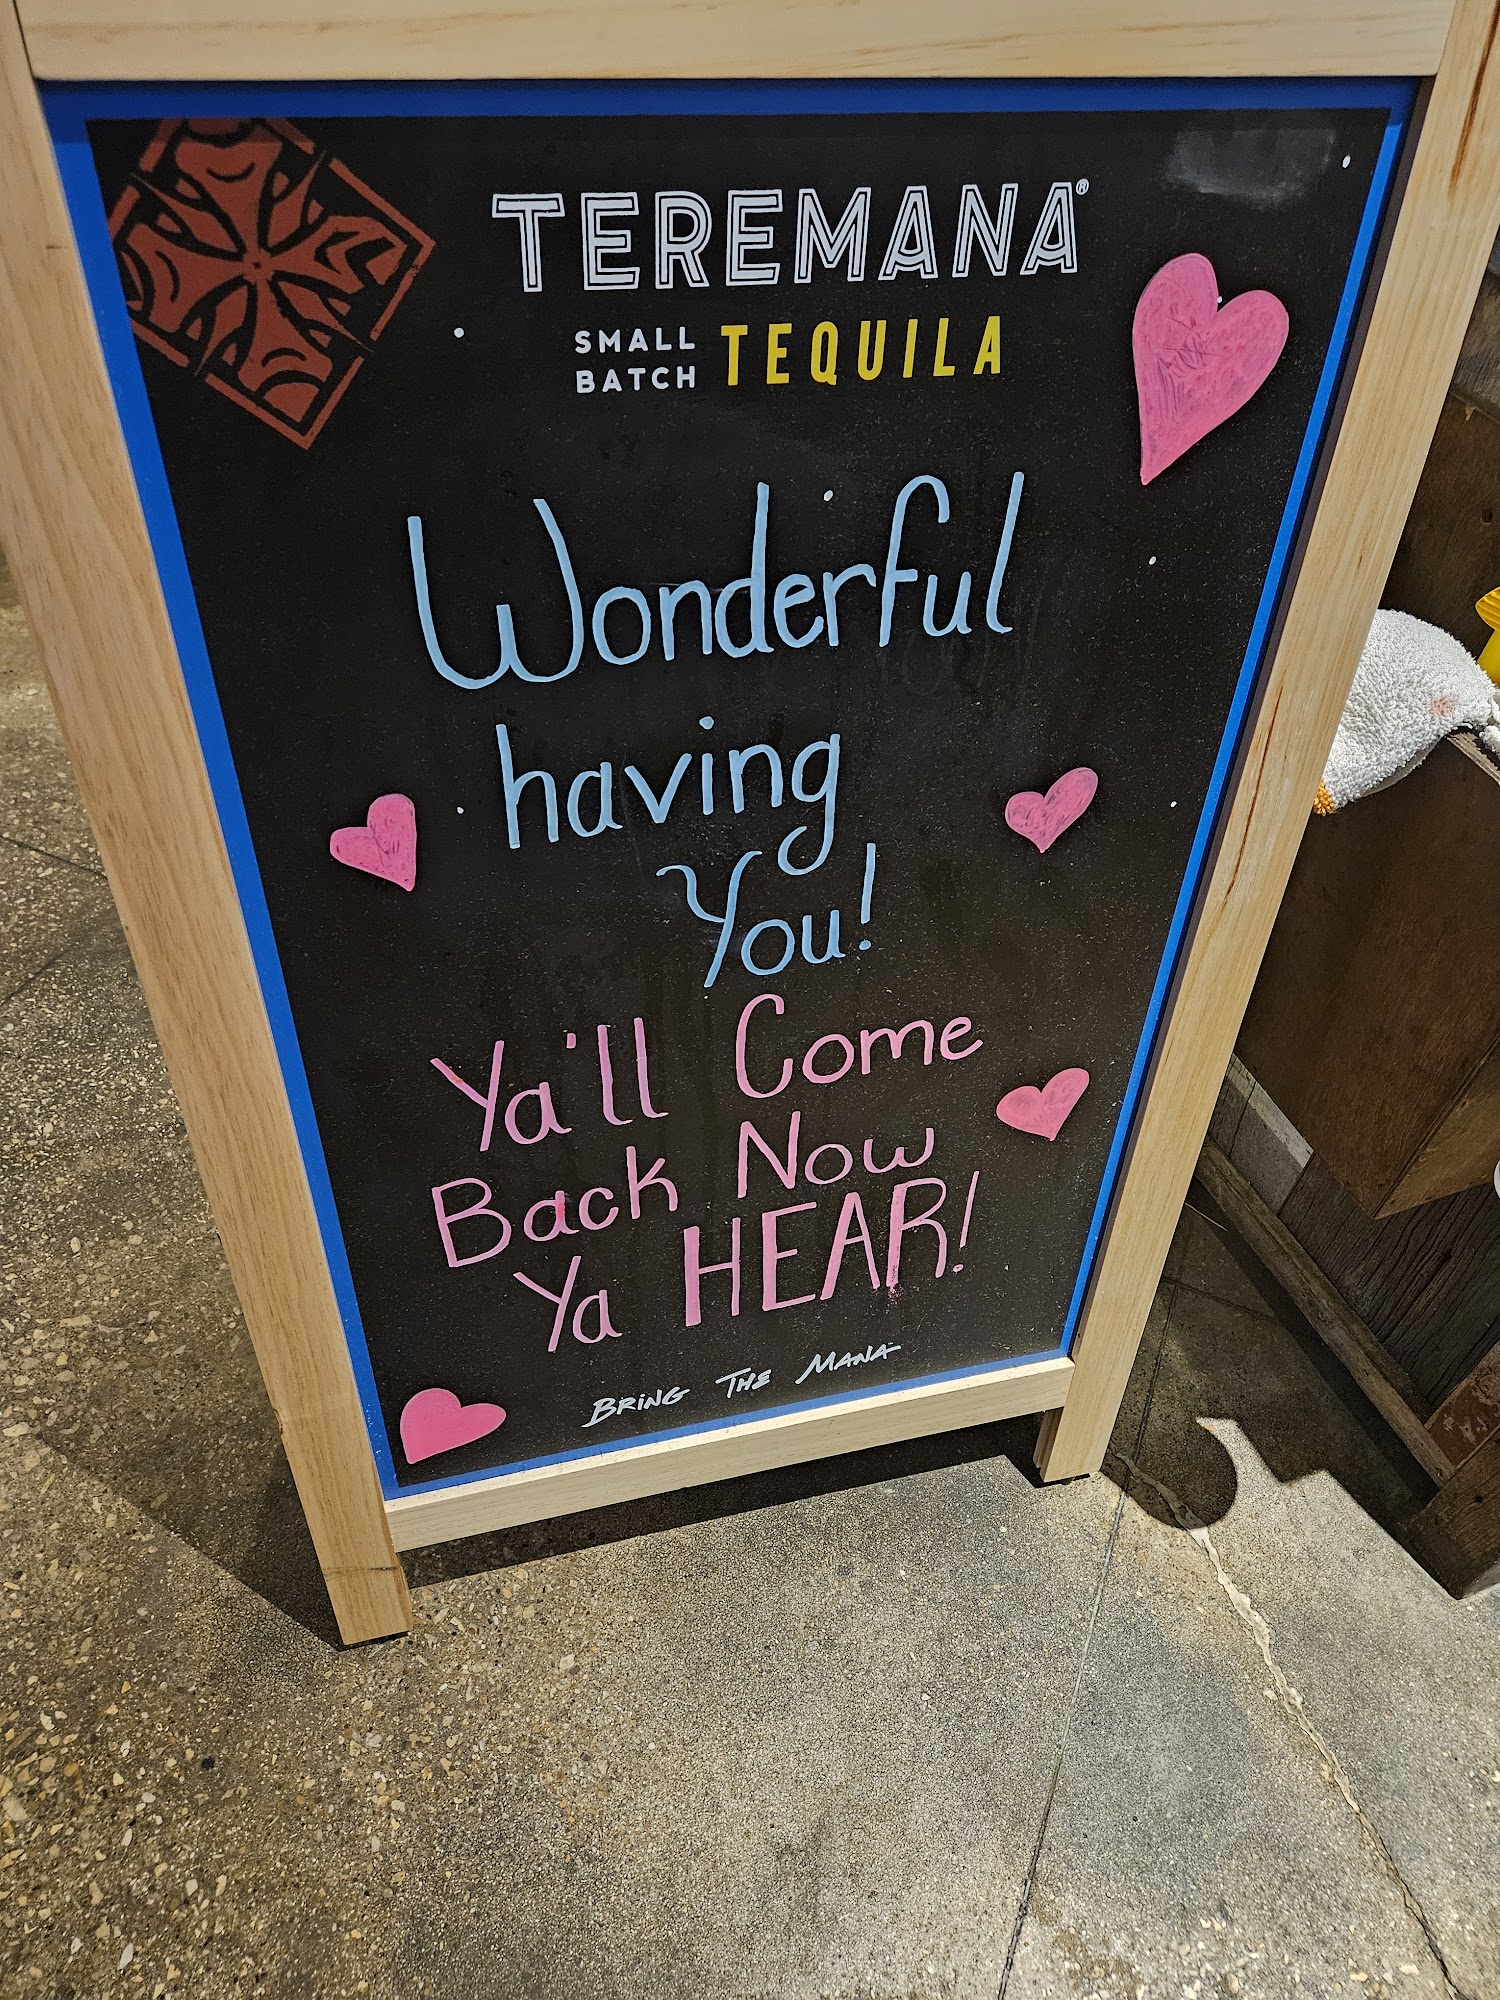 TEREMANA®
SMALL BATCH TEQUILA
Wonderful
having
You!
Ya'll Come
Back Now
Ya HEAR!
BRING THE MANA